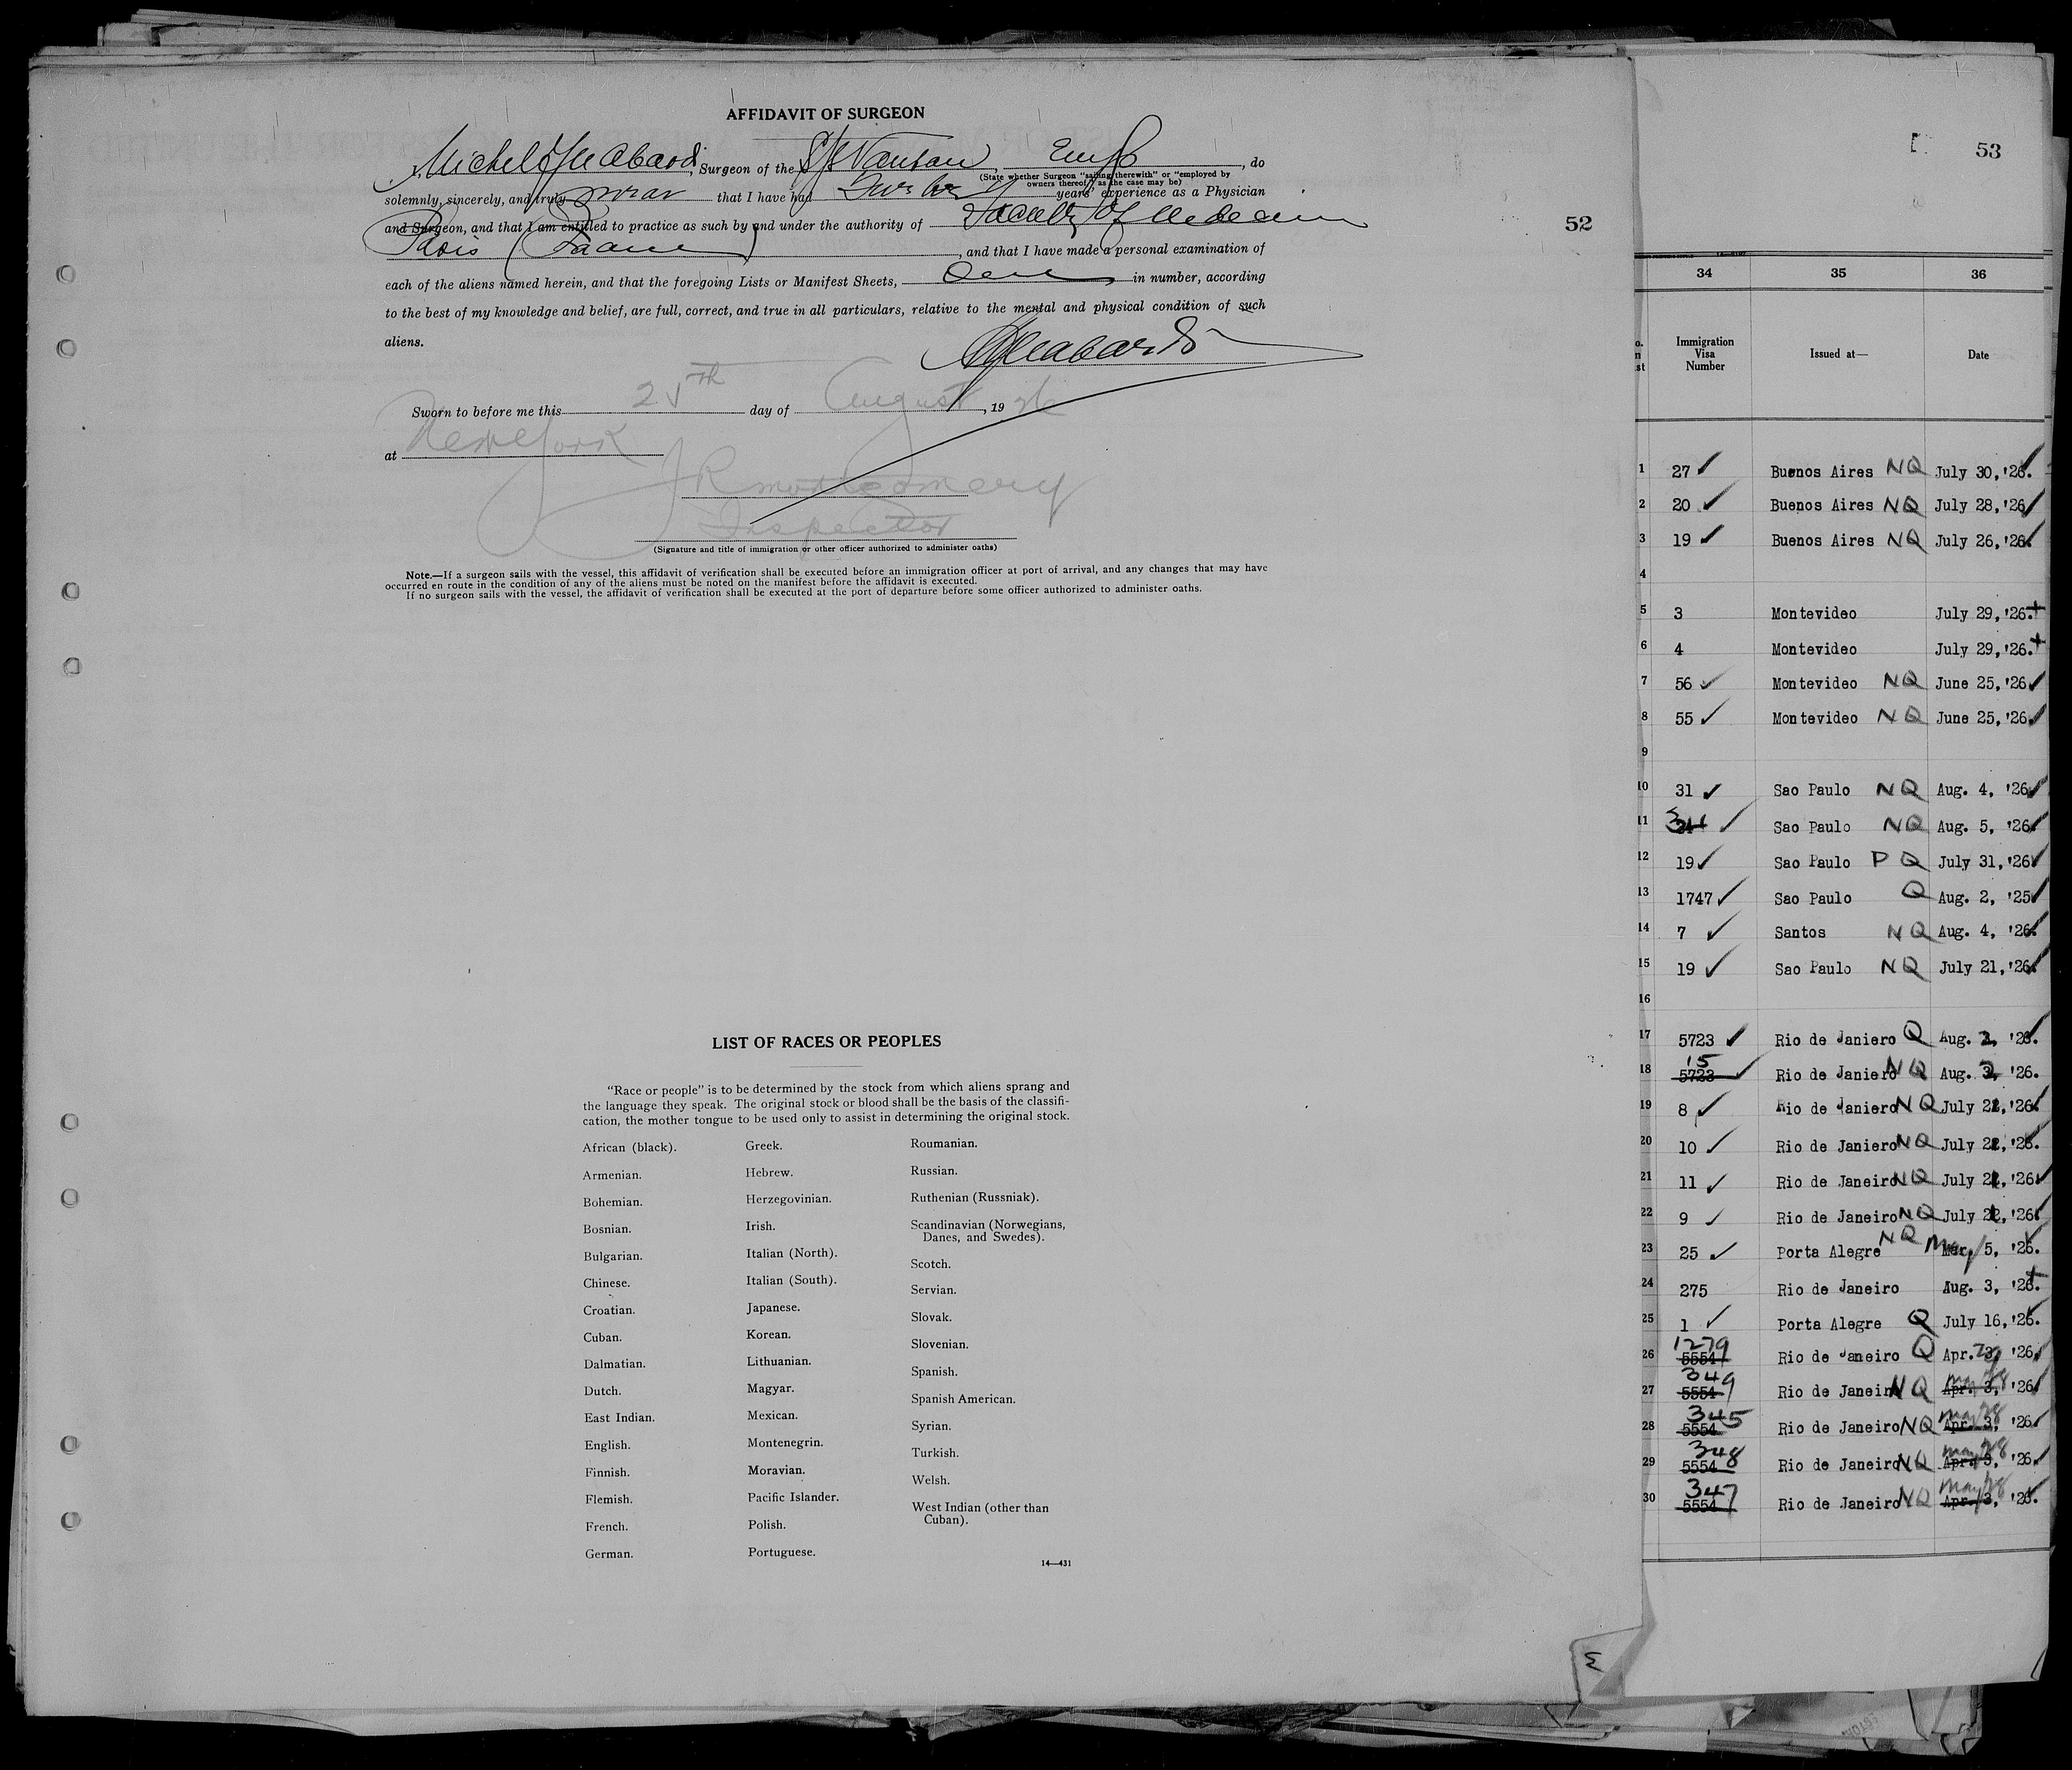 AFFIDAVIT OF SURGEON
, Surgeon of the S/S Vauban, , do
(State whether Surgeon "sailing therewith" or "employed by
owners thereof," as the case may be)
solemnly, sincerely, and truly swear that I have had years' experience as a Physician
and Surgeon, and that I am entitled to practice as such by and under the authority of Faculty of
Paris (France) , and that I have made a personal examination of
each of the aliens named herein, and that the foregoing Lists or Manifest Sheets, One in number, according
to the best of my knowledge and belief, are full, correct, and true in all particulars, relative to the mental and physical condition of such
aliens.
Sworn to before me this 25th day of August, 1926
at New York
JR Montgomery
Inspector
(Signature and title of immigration or other officer authorized to administer oaths)
Note.—If a surgeon sails with the vessel, this affidavit of verification shall be executed before an immigration officer at port of arrival, and any changes that may have
occurred en route in the condition of any of the aliens must be noted on the manifest before the affidavit is executed.
If no surgeon sails with the vessel, the affidavit of verification shall be executed at the port of departure before some officer authorized to administer oaths.
LIST OF RACES OR PEOPLES
"Race or people" is to be determined by the stock from which aliens sprang and
the language they speak. The original stock or blood shall be the basis of the classifi-
cation, the mother tongue to be used only to assist in determining the original stock.
African (black).
Armenian.
Bohemian.
Bosnian.
Bulgarian.
Chinese.
Croatian.
Cuban.
Dalmatian.
Dutch.
East Indian.
English.
Finnish.
Flemish.
French.
German.
Greek.
Hebrew.
Herzegovinian.
Irish.
Italian (North).
Italian (South).
Japanese.
Korean.
Lithuanian.
Magyar.
Mexican.
Montenegrin.
Moravian.
Pacific Islander.
Polish.
Portuguese.
Roumanian.
Russian.
Ruthenian (Russniak).
Scandinavian (Norwegians,
Danes, and Swedes).
Scotch.
Servian.
Slovak.
Slovenian.
Spanish.
Spanish American.
Syrian.
Turkish.
Welsh.
West Indian (other than
Cuban).
14—431
52
53
34 35 36
Immigration
Visa
Number
Issued at—
Date
1 27 ✓ Buenos Aires NQ July 30, '26.
2 20 ✓ Buenos Aires NQ July 28, '26
3 19 ✓ Buenos Aires NQ July 26, '26.
4
5 3 Montevideo July 29, '26.+
6 4 Montevideo July 29, '26.+
7 56 ✓ Montevideo NQ June 25, '26 ✓
8 55 ✓ Montevideo NQ June 25, '26 ✓
9
10 31 ✓ Sao Paulo NQ Aug. 4, '26 ✓
11 ✓ Sao Paulo NQ Aug. 5, '26 ✓
12 19 ✓ Sao Paulo PQ July 31, '26 ✓
13 1747 ✓ Sao Paulo Q Aug. 2, '25 ✓
14 7 ✓ Santos NQ Aug. 4, '26.
15 19 ✓ Sao Paulo NQ July 21, '26.
16
17 5723 ✓ Rio de Janiero Q Aug. 2, '26.
18 15 5723 ✓ Rio de Janiero NQ Aug. '26.
19 8 ✓ Rio de Janiero NQ July '26.
20 10 ✓ Rio de Janiero NQ July '26.
21 11 ✓ Rio de Janeiro NQ July '26 ✓
22 9 ✓ Rio de Janeiro NQ July '26.
23 25 ✓ Porta Alegre NQ May 5, '26.
24 275 Rio de Janeiro Aug. 3, '26.+
25 1 ✓ Porta Alegre Q July 16, '26.
26 1279 5554 Rio de Janeiro Q Apr. '26.
27 349 5554 Rio de Janeiro NQ Apr. 3, May 28 '26.
28 345 5554 Rio de Janeiro NQ Apr. 3, May 28 '26.
29 348 5554 Rio de Janeiro NQ Apr. 3, May 28 '26.
30 347 5554 Rio de Janeiro NQ Apr. 3, May 28 '26.